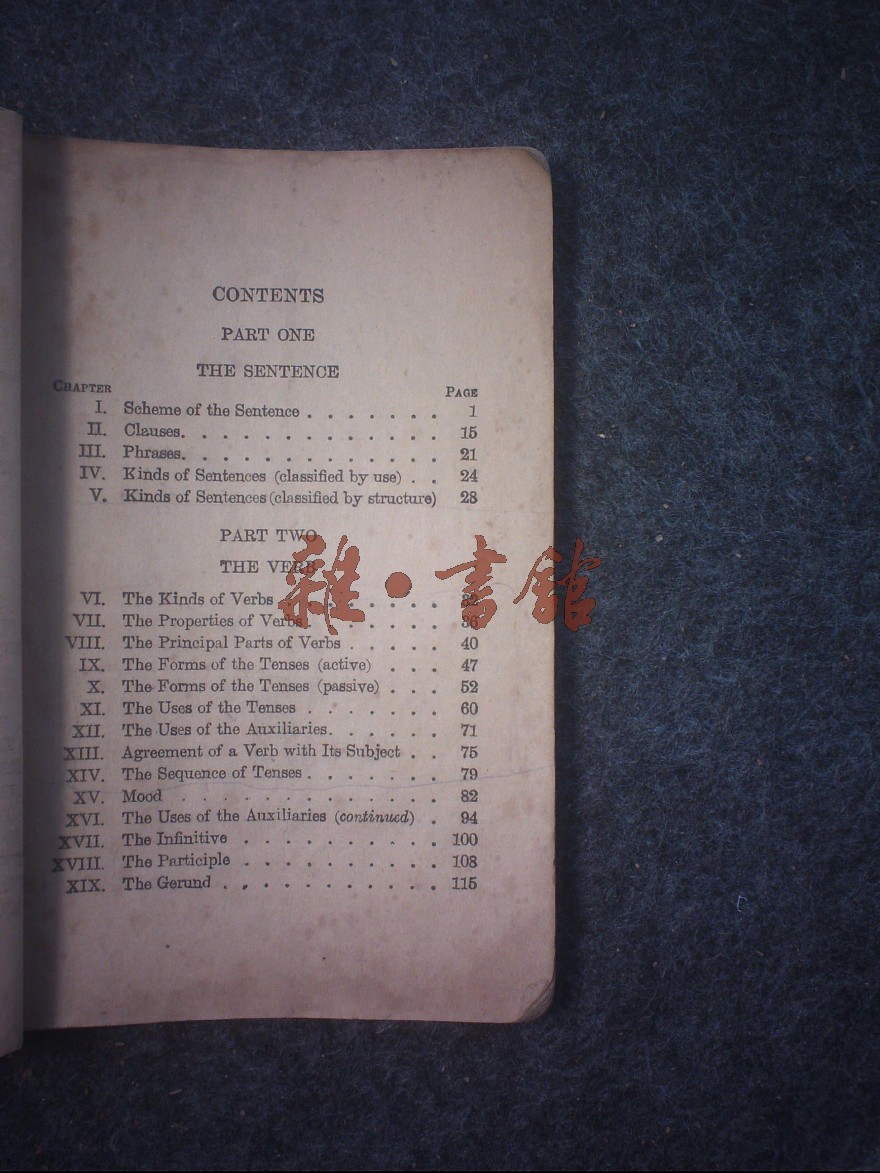 CONTENTS
PART ONE
THE SENTENCE
CHAPTER PAGE
I. Scheme of the Sentence . . . . . . . 1
II. Clauses. . . . . . . . . . . . . 15
III. Phrases. . . . . . . . . . . . . 21
IV. Kinds of Sentences (classified by use) . . 24
V. Kinds of Sentences (classified by structure) 28
PART TWO
THE VERB
雜·書館
VI. The Kinds of Verbs . . . . . . . . 32
VII. The Properties of Verbs . . . . . . . 36
VIII. The Principal Parts of Verbs . . . . . 40
IX. The Forms of the Tenses (active) . . . 47
X. The Forms of the Tenses (passive) . . . 52
XI. The Uses of the Tenses . . . . . . . 60
XII. The Uses of the Auxiliaries. . . . . . 71
XIII. Agreement of a Verb with Its Subject . . 75
XIV. The Sequence of Tenses . . . . . . . 79
XV. Mood . . . . . . . . . . . . . 82
XVI. The Uses of the Auxiliaries (continued) . 94
XVII. The Infinitive . . . . . . . . . . 100
XVIII. The Participle . . . . . . . . . . 108
XIX. The Gerund . . . . . . . . . . . 115